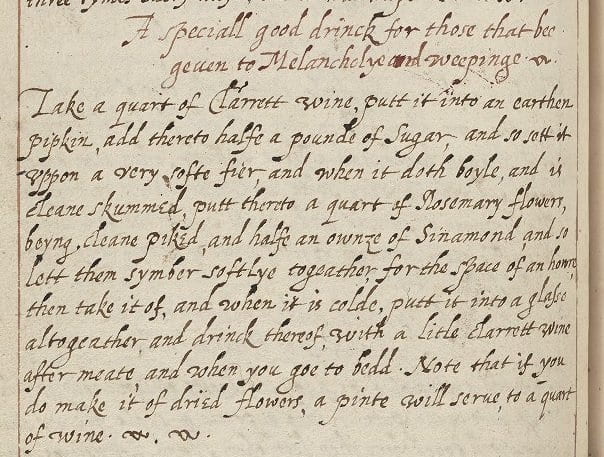 three tymes every day
A speciall good drinck for those that bee
geven to Melancholye and weepinge
Take a quart of Clarrett wine, putt it into an earthen
pipkin, add thereto halfe a pounde of Sugar, and so sett it
uppon a very softe fier, and when it doth boyle, and is
cleane skummed, putt thereto a quart of Rosemary flowers,
beyng cleane piked, and halfe an ownze of Sinamond and so
lett them symber softlye togeather, for the space of an howre,
then take it of, and when it is colde, putt it into a glasse
altogeather, and drinck thereof, with a litle Clarrett wine
after meate, and when you goe to bedd. Note that if you
do make it, of dried flowers, a pinte will serve, to a quart
of wine.